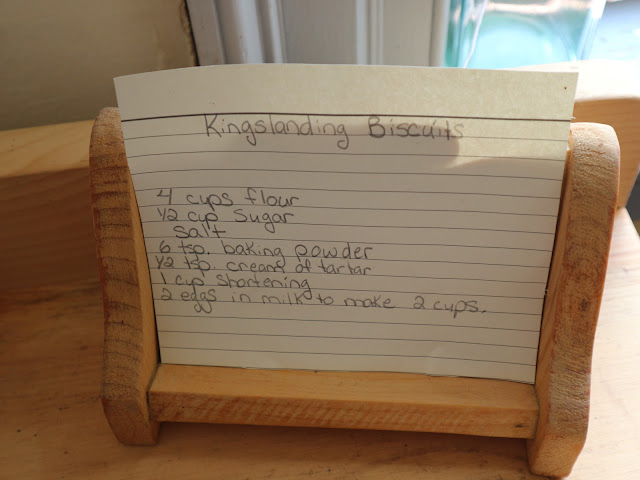 Kingslanding Biscuits
4 cups flour
1/2 cup sugar
salt
6 tsp. baking powder
1/2 tsp. cream of tartar
1 cup shortening
2 eggs in milk to make 2 cups.